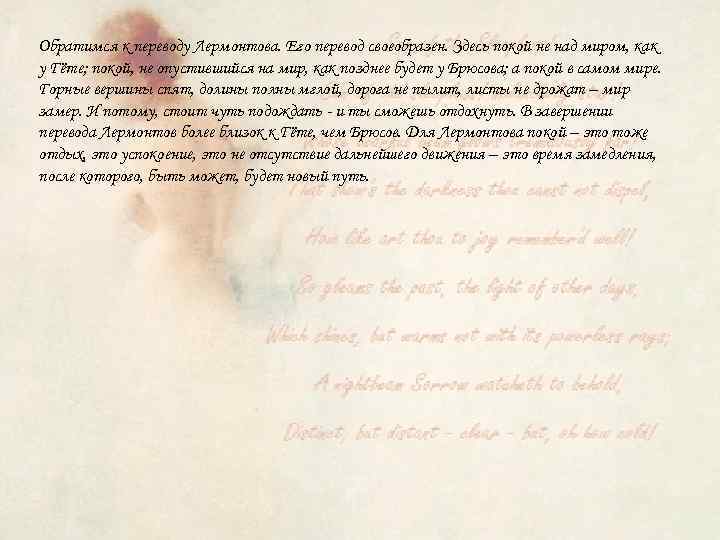 Обратимся к переводу Лермонтова. Его перевод своеобразен. Здесь покой не над миром, как
у Гёте; покой, не опустившийся на мир, как позднее будет у Брюсова; а покой в самом мире.
Горные вершины спят, долины полны мглой, дорога не пылит, листы не дрожат – мир
замер. И потому, стоит чуть подождать - и ты сможешь отдохнуть. В завершении
перевода Лермонтов более близок к Гёте, чем Брюсов. Для Лермонтова покой – это тоже
отдых, это успокоение, это не отсутствие дальнейшего движения – это время замедления,
после которого, быть может, будет новый путь.
That shows the darkness thou canst not dispel,
How like art thou to joy remember'd well!
So gleams the past, the light of other days,
Which shines, but warms not with its powerless rays;
A nightbeam Sorrow watcheth to behold,
Distinct, but distant – clear – but, oh how cold!